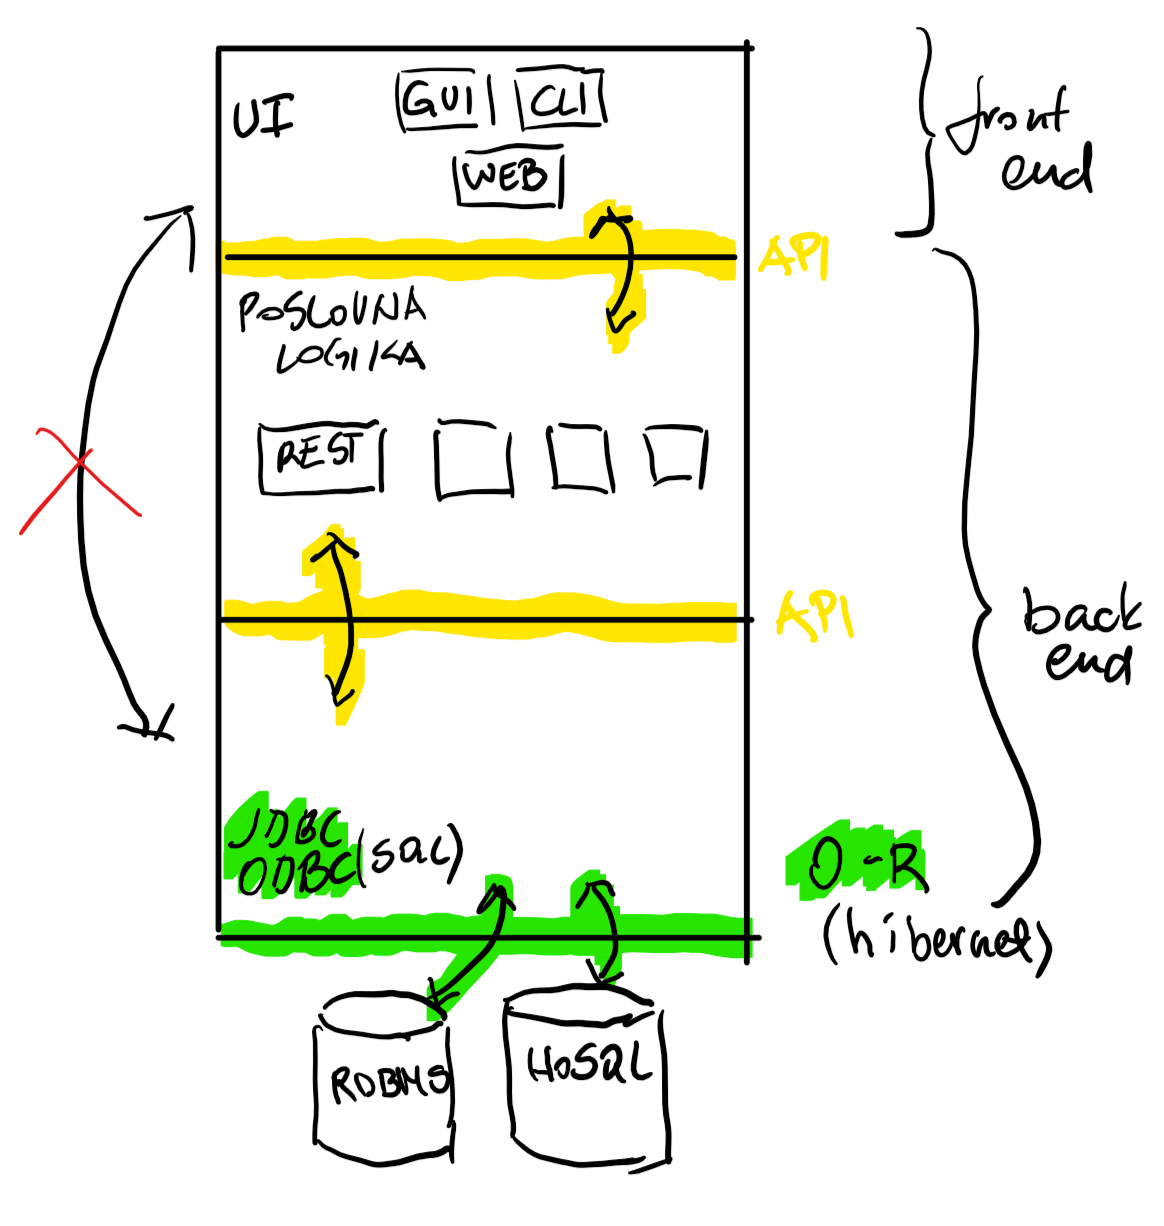 UI
GUI
CLI
WEB
front
end
API
POSLOVNA
LOGIKA
REST
API
back
end
JDBC
ODBC (SQL)
O-R
(hibernet)
RDBMS
NoSQL